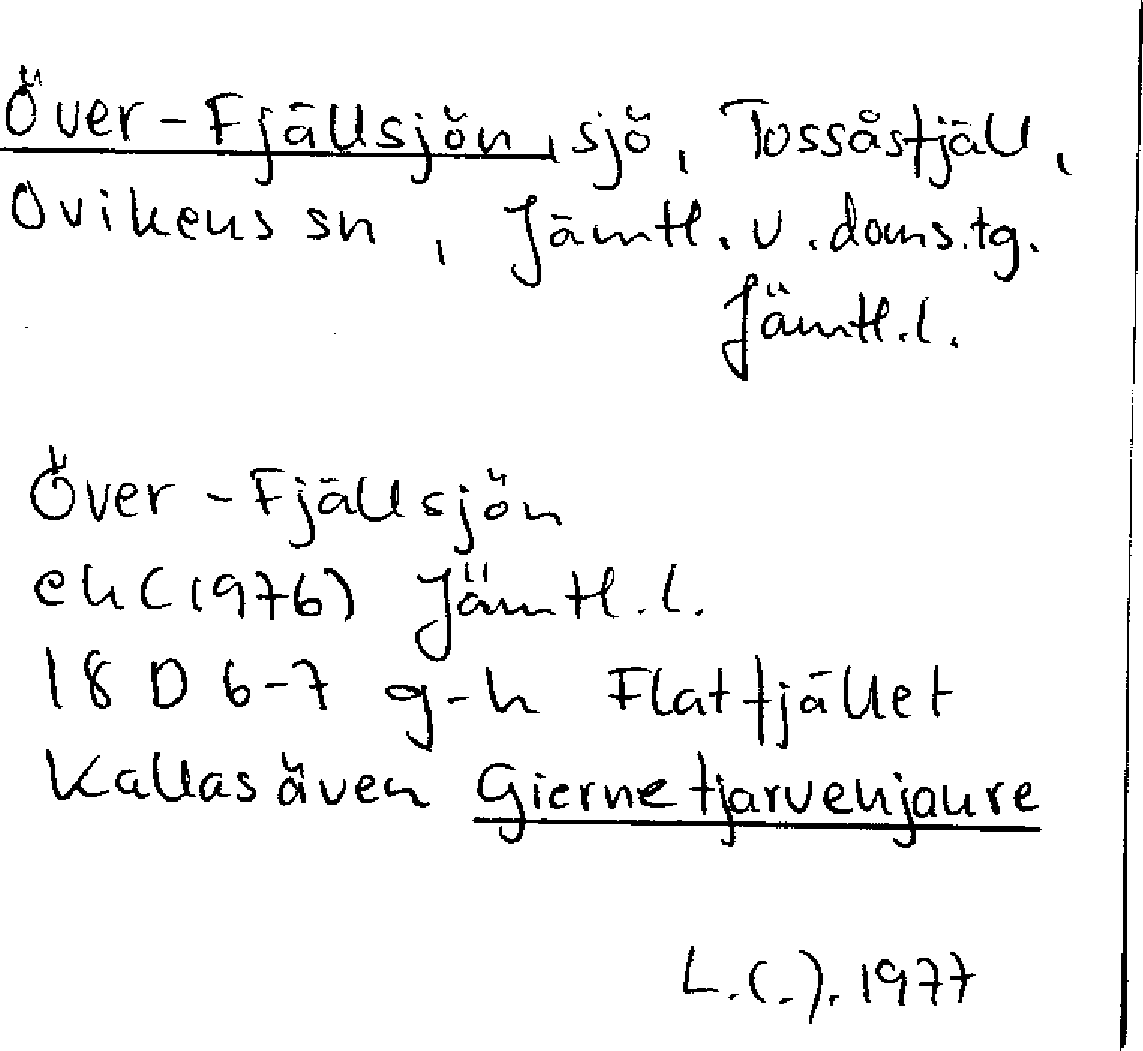 Över-Fjällsjön, sjö, Tossåsfjäll,
Ovikens sn, Jämtl. v. doms.tg.
Jämtl.l.
Över-Fjällsjön
ek(1976) Jämtl.l.
18 D 6-7 g-h Flatfjället
Kallas även Giernetjarvenjaure
1977